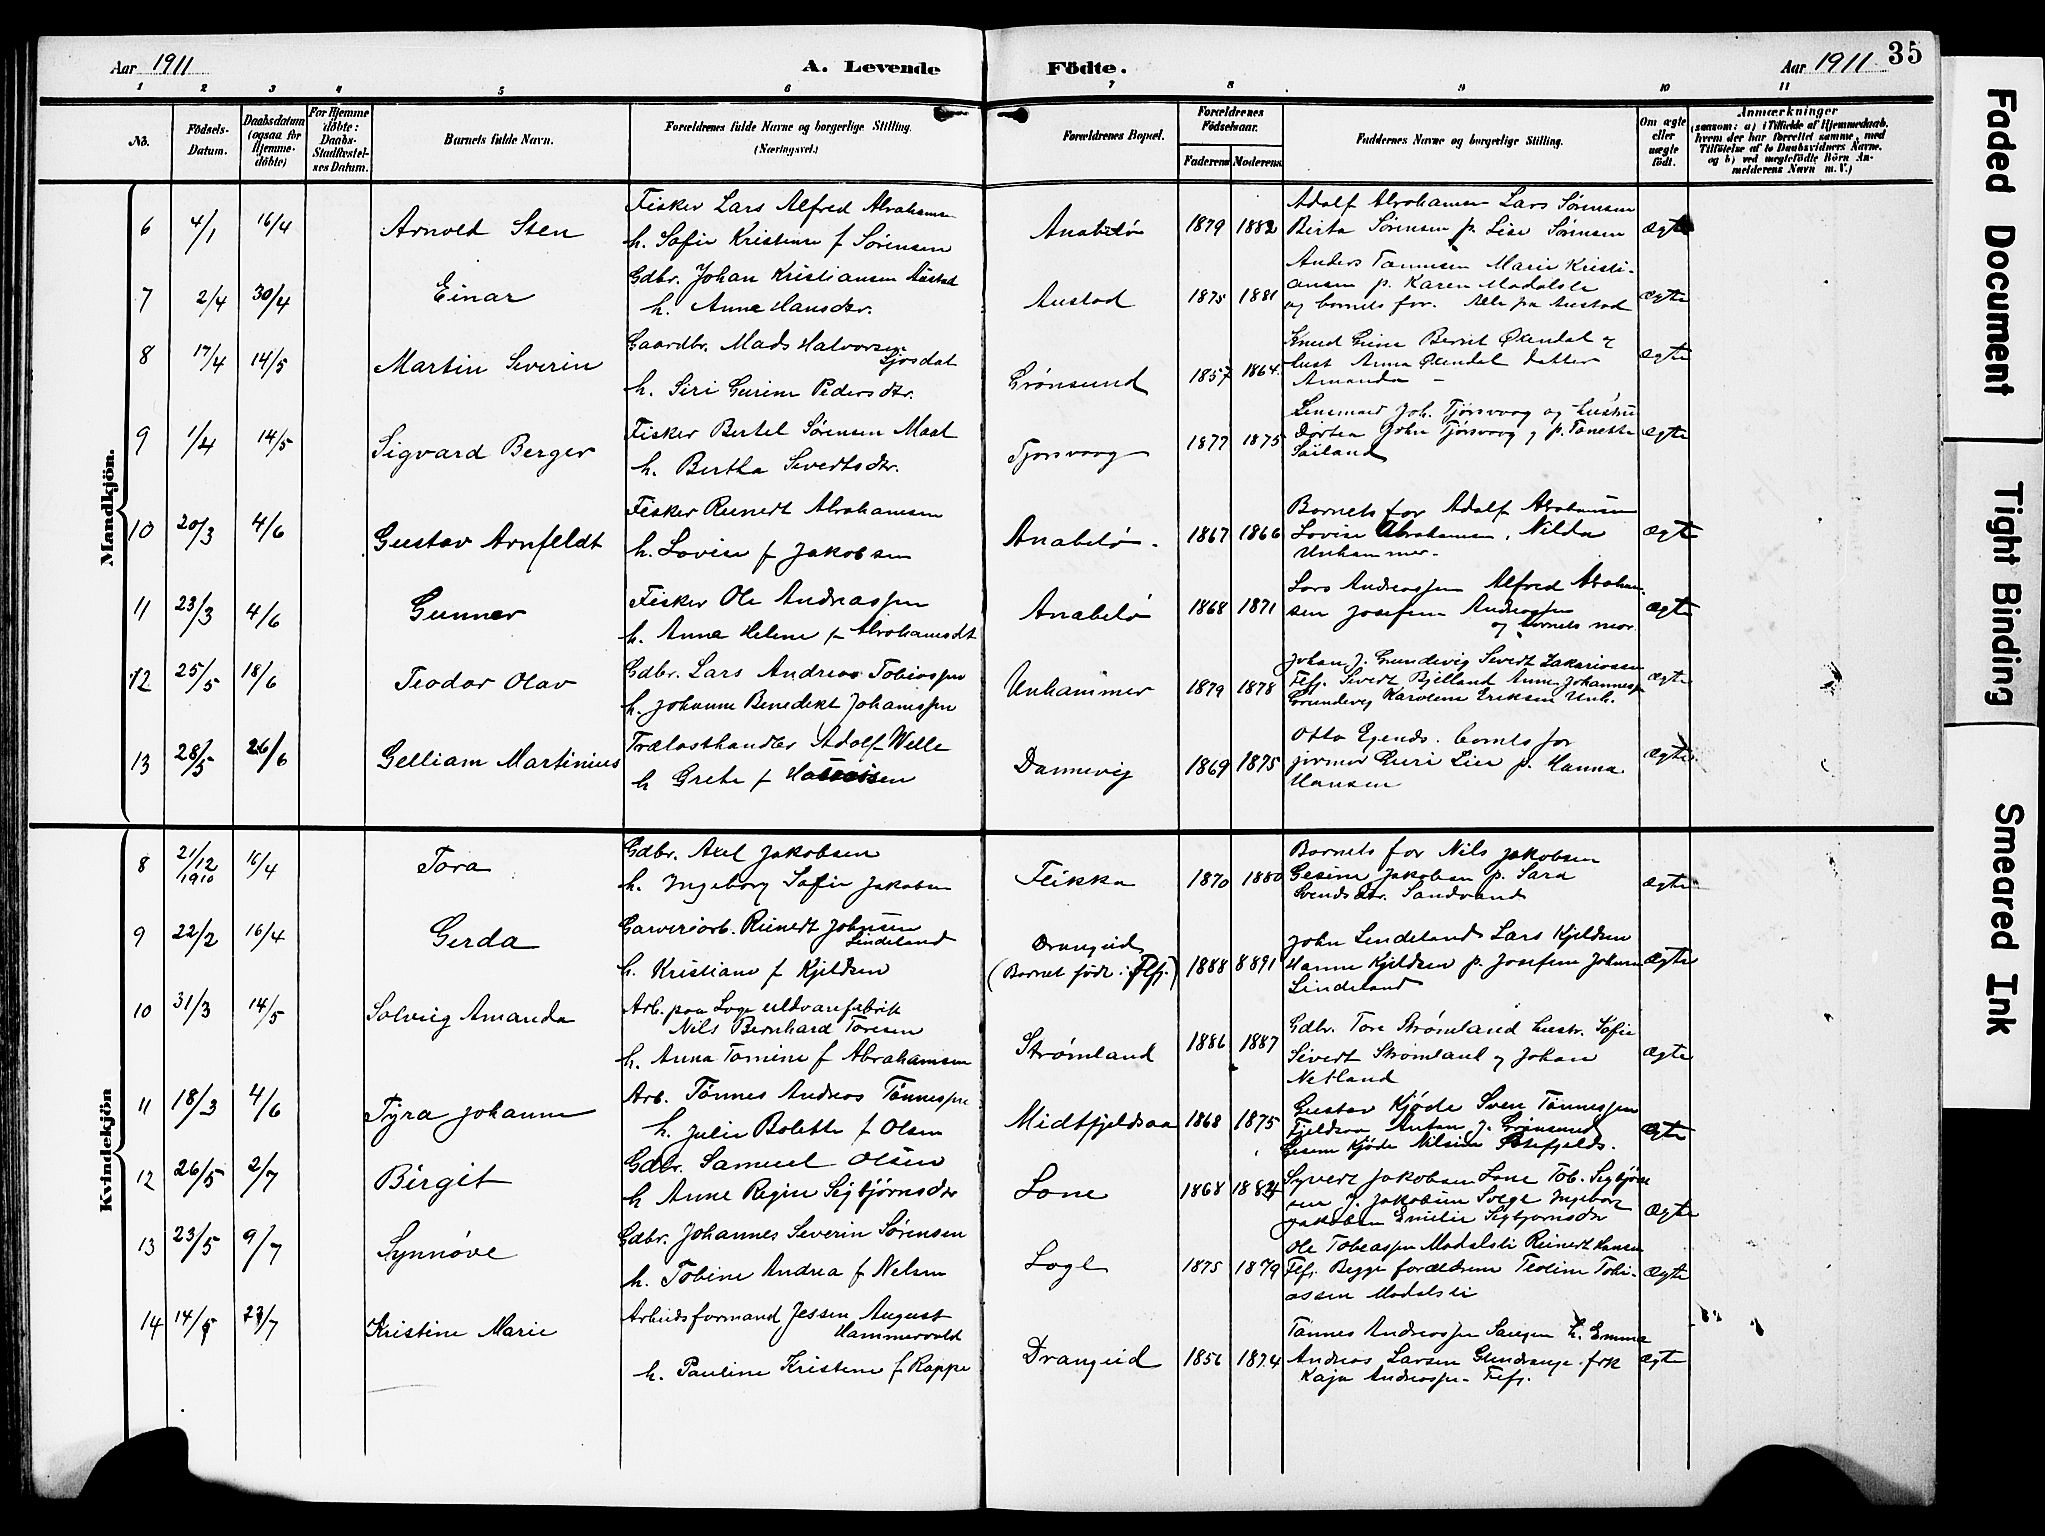 Aar 1911
A. Levende
Födte.
Aar 1911
35
1 2 3 4 5 6 7 8 9 10 11
No.
Födsels-
Datum.
Daabsdatum
(ogsaa for
Hjemme-
döbte)
For Hjemme
döbte:
Daabs-
Stadfæstel-
ses Datum.
Barnets fulde Navn.
Forældrenes fulde Navne og borgerlige Stilling.
(Næringsvei.)
Forældrenes Bopæl.
Forældrenes
Födselsaar.
Faderens
Moderens
Faddernes Navne og borgerlige Stilling.
Om ægte
eller
uægte
födt.
Anmærkninger
(saasom: a) i Tilfælde af Hjemmedaab,
hvem der har forrettet samme, med
Tilföielse af to Daabsvidners Navne,
og b) ved uægtefödte Börn An-
melderens Navn m. V.)
Mandkjön.
6 4/1 16/4 Arnold Sten
Fisker Lars Alfred Abrahamsen
h. Sofie Kristine f Sørensen
Anabeløi 1879 1882
Adolf Abrahamsen Lars Sørensen
Berta Sørensen p. Lise Sørensen
ægte
7 2/4 30/4 Einar
Gdbr. Johan Kristiansen Austad
h. Anne Hansdtr.
Austad 1875 1881
Anders Tønnesen Marie Kristi-
ansen p. Karen Modalsli
og barnets for. Alle paa Austad
ægte
8 17/4 14/5 Martin Severin
Gaardbr. Mads Halvorsen
h. Siri Gurine Pedersdtr.
Grønsund 1857 1864
Amanda -
ægte
9 1/4 14/5 Sigvard Berger
Fisker Bertel Sørensen Maal
h. Bertha Sivertsdtr.
Tjørsvaag 1877 1875
Lensmand Joh. Tjørsvaag og hustru
Dortea John Tjørsvaag p. Tonette
ægte
10 20/3 4/6 Gustav Arnfeldt
Fisker Reinert Abrahamsen
h. Lovise f Jakobsen
Anabeløi 1867 1866
Barnets for Adolf Abrahamsen
Lovise Abrahamsen, Nilda
Unhammer.
ægte
11 23/3 4/6 Gunnar
Fisker Ole Andreassen
h. Anne Helene f Abrahamsdt
Anabeløi 1868 1871
Lars Andreassen Alfred Abraham-
sen Josefine Andreassen
og barnets mor.
ægte
12 25/5 18/6 Teodor Olav
Gdbr. Lars Andreas Tobiassen
h. Johanne Benedikte Johanssen
Unhammer 1879 1878
Johan J. Grundevig Sivert Zakariassen
Flfj. Sivert Bjelland Anne Johannesen
Grundevig Karoline Eriksen Unh.
ægte
13 28/5 26/6 Gelliam Martinius
Trælasthandler Adolf Welle
h Grete f
Dannevig 1869 1875
Otto Egends. barnets for
jormor Guri Lie p. Hanna
Hansen
ægte
Kvindekjön
8 21/12 1910 16/4 Tora
Gdbr. Axel Jakobsen
h. Ingeborg Sofie Jakobsen
Fleikka 1870 1880
Barnets for Nils Jakobsen
Gesine Jakobsen p. Sara
Svendsdtr. Sandvand
ægte
9 22/2 16/4 Gerda
Garveriarb. Reinert Johnsen
Lindeland
h. Kristiane f Kjeldsen
Drangeid
(Barnet født i Flfj.) 1888 8891
John Lindeland Lars Kjeldsen
Hanne Kjeldsen p. Josefine Johnsen
Lindeland
ægte
10 31/3 14/5 Solveig Amanda
Arb. paa Loge uldvarefabrik
Nils Bernhard Toresen
h. Anna Tomine f Abrahamsen
Strømland 1886 1887
Gdbr. Tore Strømland hustr. Sofie
Sivert Strømland og Johan
Netland
ægte
11 18/3 4/6 Tyra Johanne
Arb. Tønnes Andreas Tønnessen
h. Julie Bolette f Olsen
Midtfjeldsaa 1868 1875
Gustav Kjøde Sven Tønnessen
Fjeldsaa Anton J. Grønsund
Gesine Kjøde Nilsine
ægte
12 26/5 2/7 Birgit
Gdbr. Samuel Olsen
h Anne Regine Sigbjørnsdtr
Lone 1868 1884
Syvert Jakobsen Lone Tob. Sigbjørn
sen J. Jakobsen Svege Ingeborg
Jakobsen Emilie Sigbjørnsdtr
ægte
13 23/5 9/7 Synnøve
Gdbr. Johannes Severin Sørensen
h. Tobine Andrea f Nelsen
Loge 1875 1879
Ole Tobiassen Modalsli Reinert Hansen
Flfj. Begge forældrene Teoline Tobi-
assen Modalsli
ægte
14 14/5 23/7 Kristine Marie
Arbeidsformand Jessen August
Hammervold
h. Pauline Kristine f Rappe
Drangeid 1856 1874
Tønnes Andreassen h. Emma
Andreas Larsen Glendrange frk
Kaja Andreassen Flfj.
ægte
Faded Document
Tight Binding
Smeared Ink